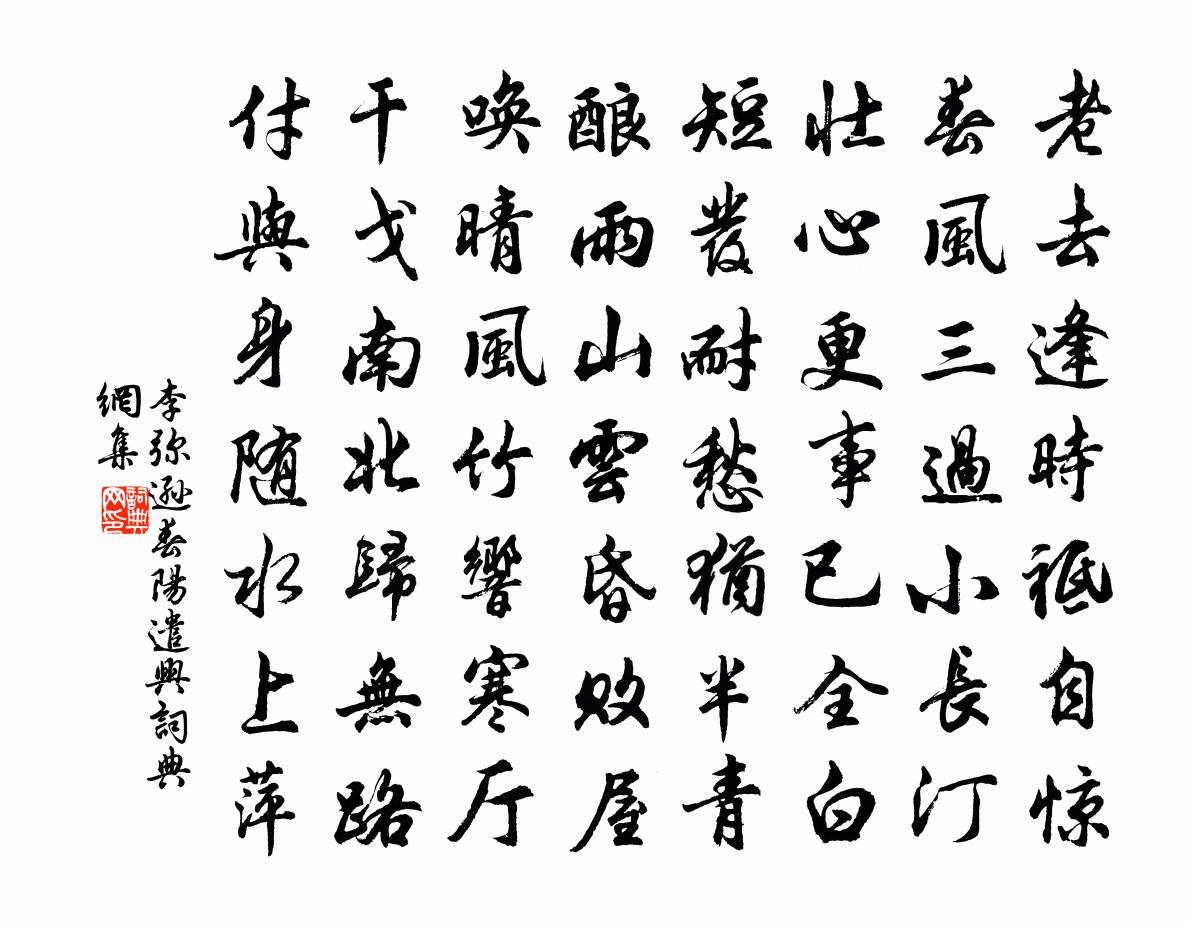 老去逢時祗自惊
春風三過小長汀
壮心更事已全白
短發耐愁猶半青
酿雨山雲昏败屋
唤晴風竹響寒厅
干戈南北歸無路
付與身随水上萍
李弥遜春陽遣興詞典
網集
詞典网印